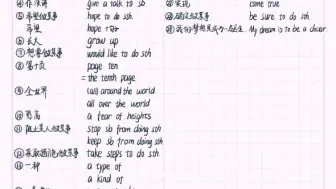 作演讲 give a talk to sb
希望做某事 hope to do sth
希望 hope +从句
⑥ 长大 grow up
⑦ 想要做某事 would like to do sth
⑧ 第十页 page ten
= the tenth page
⑨ 全世界 all around the world
all over the world
⑩ 恐高 a fear of heights
⑪ 阻止某人做某事 stop sb from doing sth
keep sb from doing sth
采取措施做某事 take steps to do sth
一种 a type of
a kind of
实现 come true
确保做某事 be sure to do sth
我的梦想是成为一名 My dream is to be a